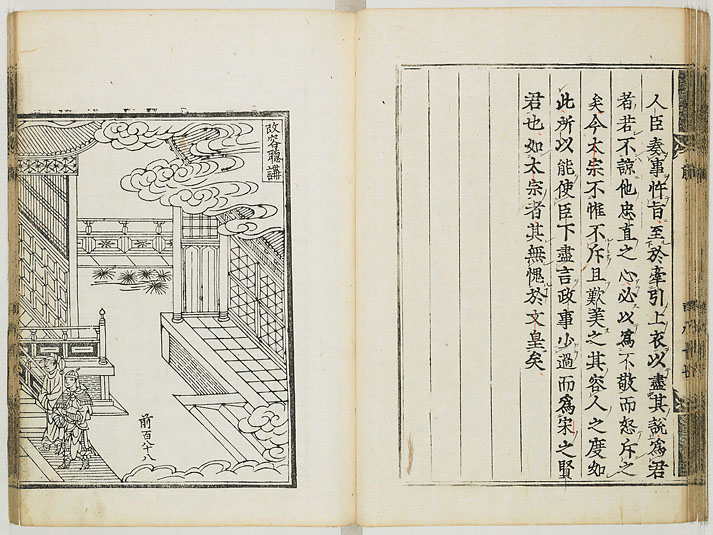 人臣奏事忤旨至於牽引上衣以盡其說為君
者若不諒他忠直之心必以為不敬而怒斥之
矣今太宗不惟不斥且歎美之其容人之度如
此所以能使臣下盡言政事少過而為宋之賢
君也如太宗者其無愧於文皇矣
改容聽講
前百八十八